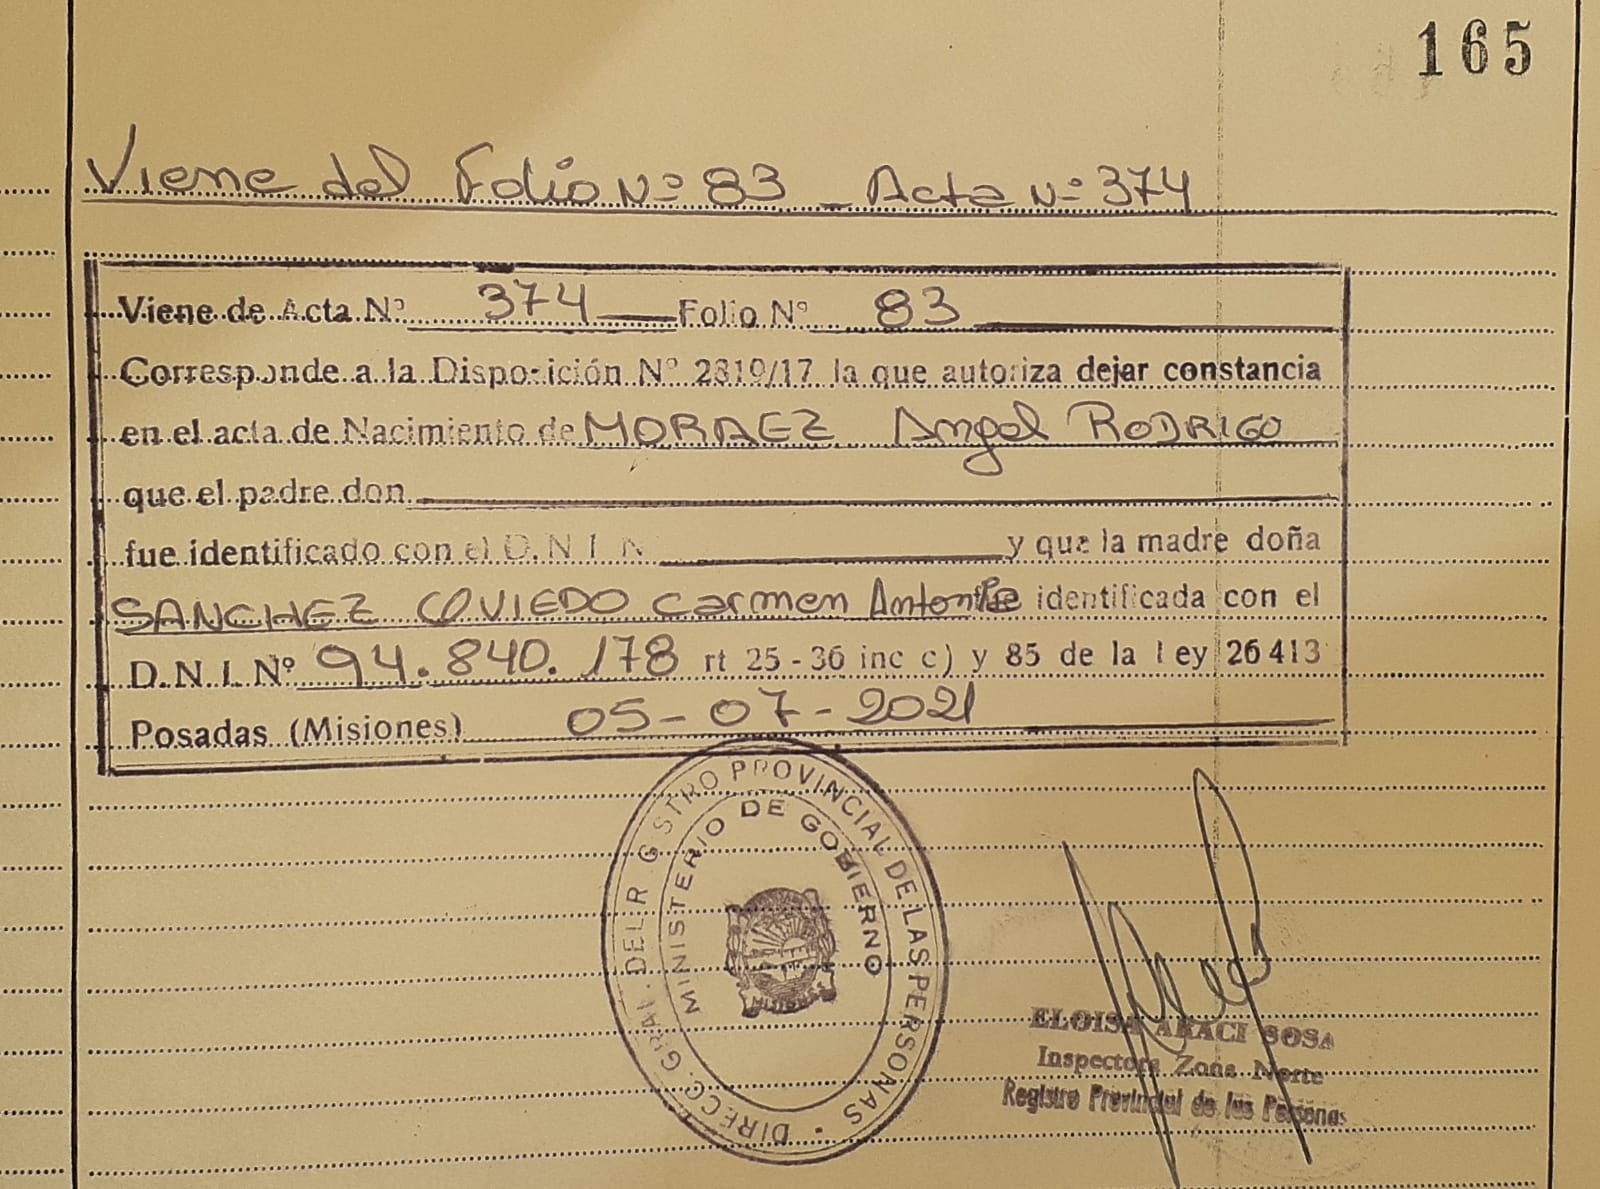 165
Viene del Folio Nº 83 - Acta Nº 374
Viene de Acta Nº 374 — Folio Nº 83
Corresponde a la Disposición Nº 2819/17 la que autoriza dejar constancia
en el acta de Nacimiento de MORAEZ Angel RODRIGO
que el padre don
fue identificado con el D.N.I. N y que la madre doña
SANCHEZ OVIEDO Carmen Antonia identificada con el
D.N.I. Nº 94.840.178 rt 25-36 inc c) y 85 de la Ley 26413
Posadas (Misiones) 05-07-2021
DIRECC. GRAL. DEL R GISTRO PROVINCIAL DE LAS PERSONAS
MINISTERIO DE GOBIERNO
MISIONES
ELOISA ARACI SOSA
Inspectora Zona Norte
Registro Provincial de las Personas